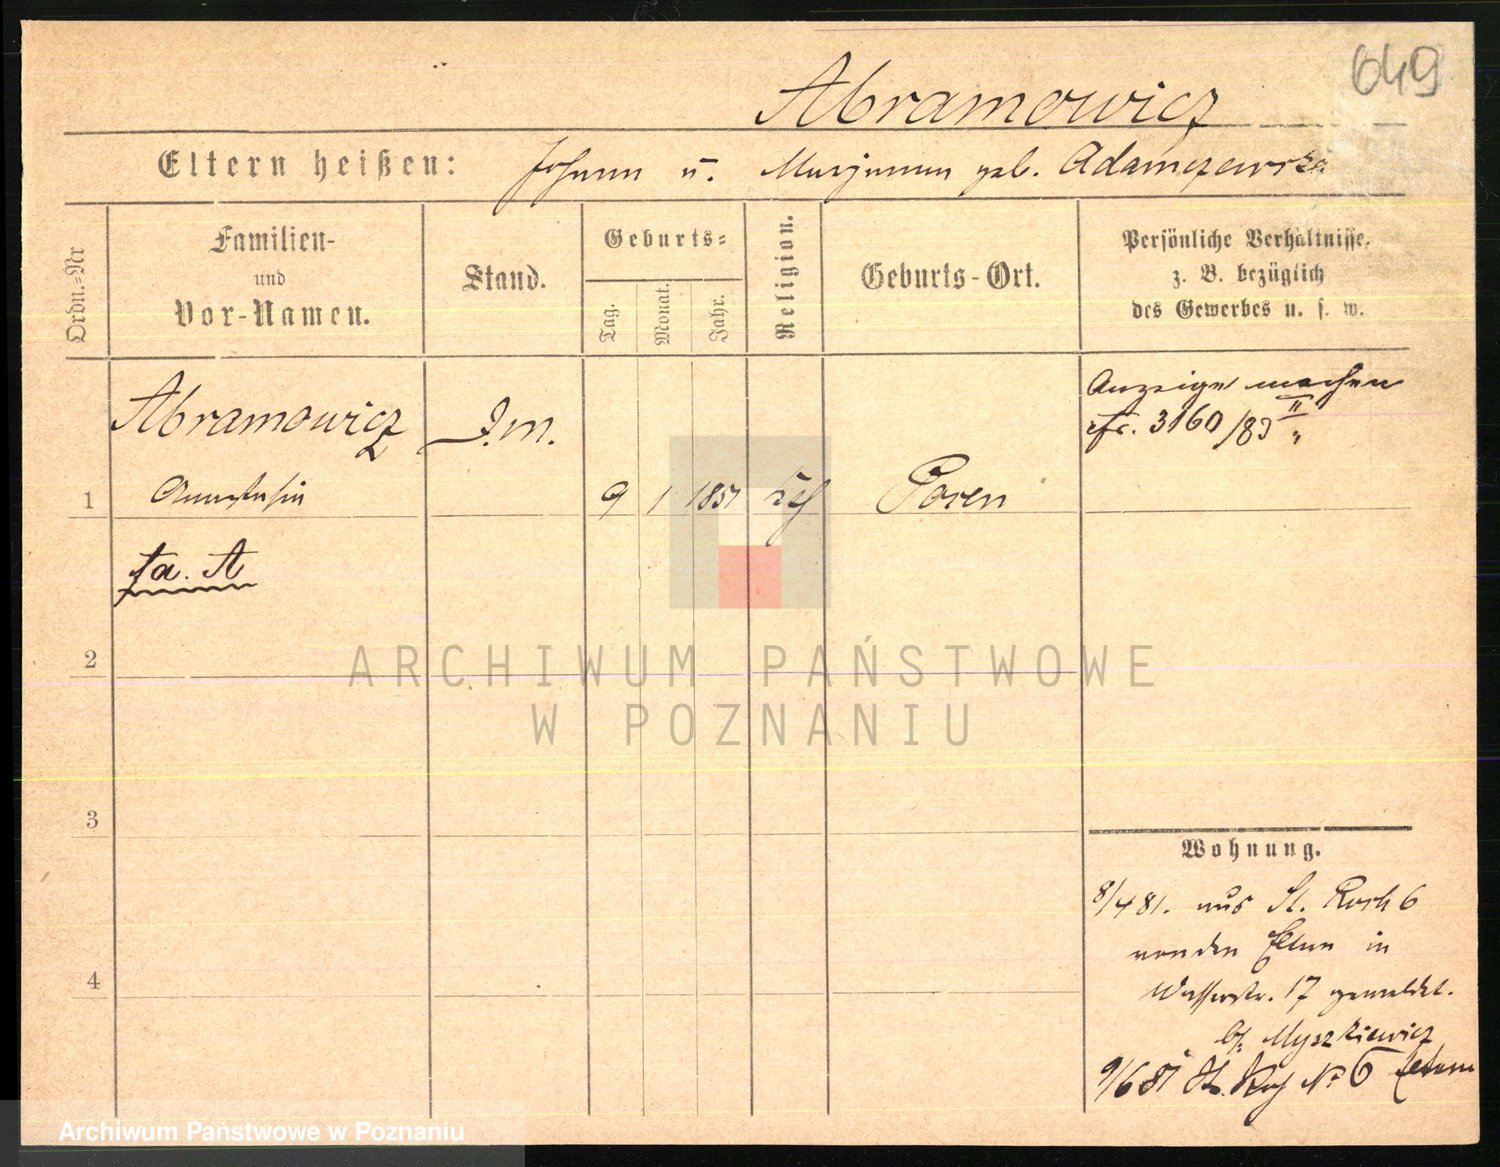 649
Abramowicz
Eltern heißen: Johann u. Marjanna geb. Adamczewska
Ordn.-Nr
Familien-
und
Vor-Namen.
Stand.
Geburts-
Tag.
Monat.
Jahr.
Religion.
Geburts-Ort.
Persönliche Verhältnisse,
z. B. bezüglich
des Gewerbes u. s. w.
Abramowicz
Anastasia
1
9 1 1851
Posen
Anzeige machen
3160/83 II
2
3
4
Wohnung.
8/4 81. aus St. Roch 6
von den Eltern in
Wasserstr. 17 gemeldet.
bei Myszkiewicz
9/6 81 St. Roch No 6 Eltern
ARCHIWUM PAŃSTWOWE
W POZNANIU
Archiwum Państwowe w Poznaniu